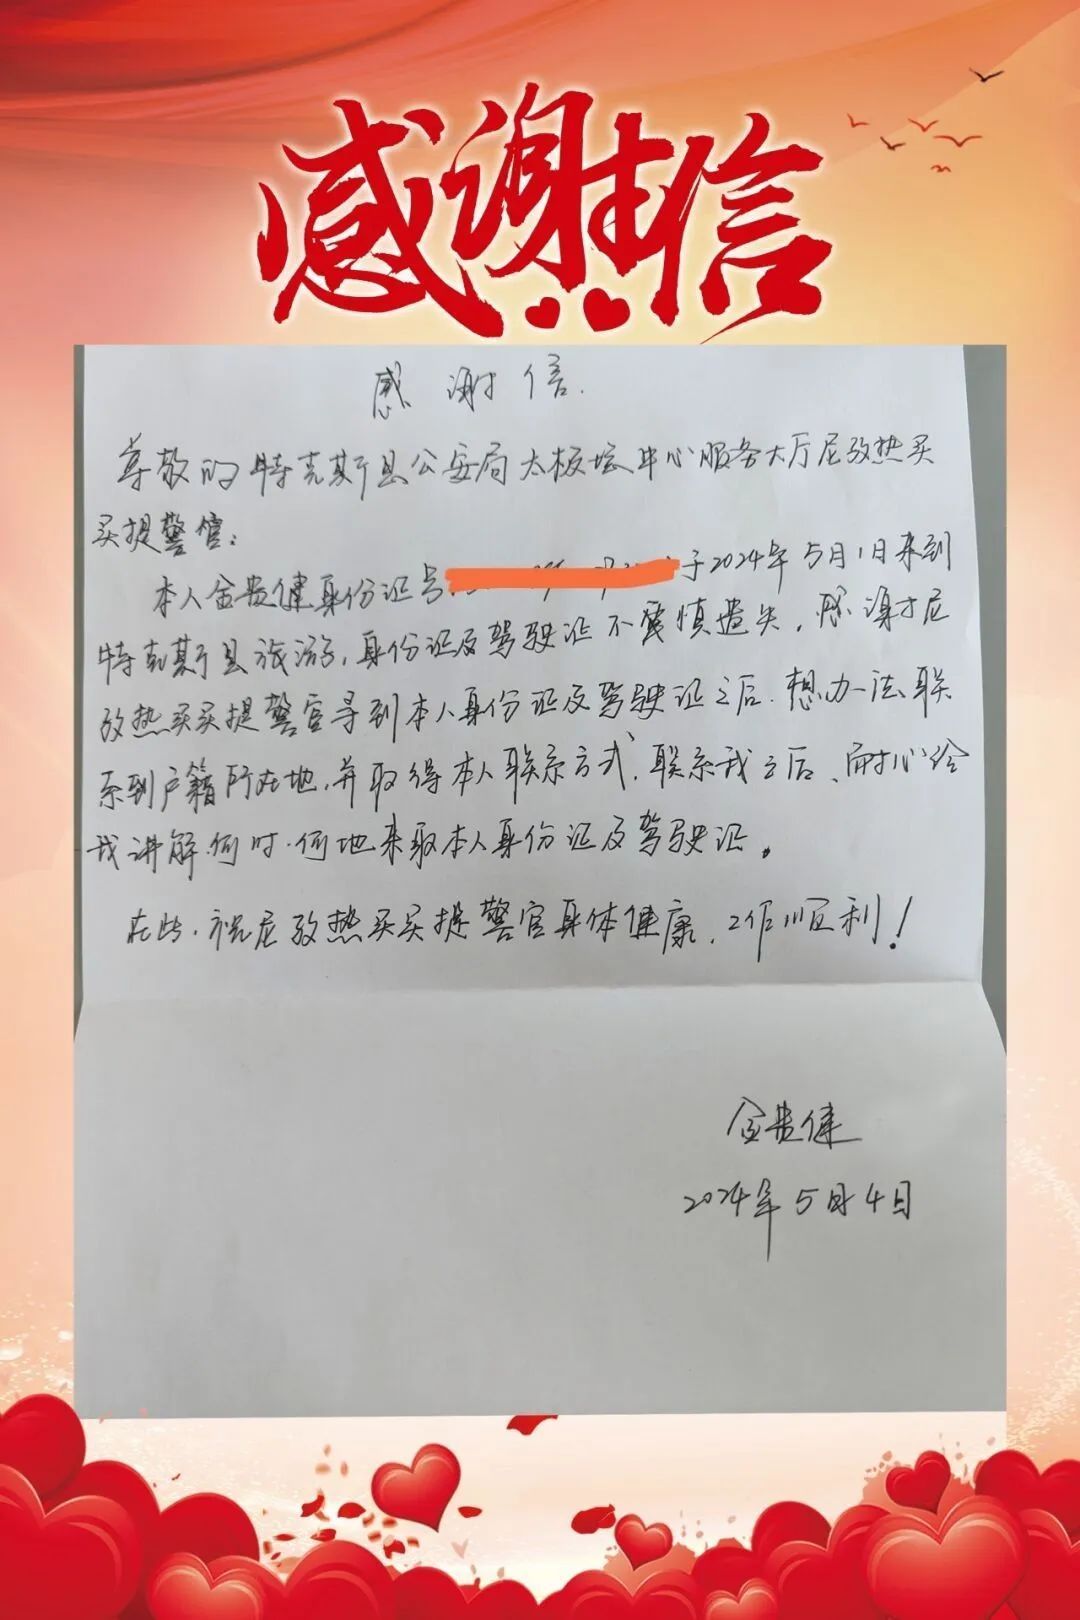 感谢信
感谢信.
尊敬的特克斯县公安局太极坛中心服务大厅尼孜热买
买提警官：
本人金贵健身份证号 于2024年5月1日来到
特克斯县旅游，身份证及驾驶证不慎遗失，感谢尼
孜热买买提警官寻到本人身份证及驾驶证之后.想办法联
系到户籍所在地，并取得本人联系方式，联系我之后、耐心给
我讲解何时.何地来取本人身份证及驾驶证。
在此，祝尼孜热买买提警官身体健康，工作顺利！
金贵健
2024年5月4日